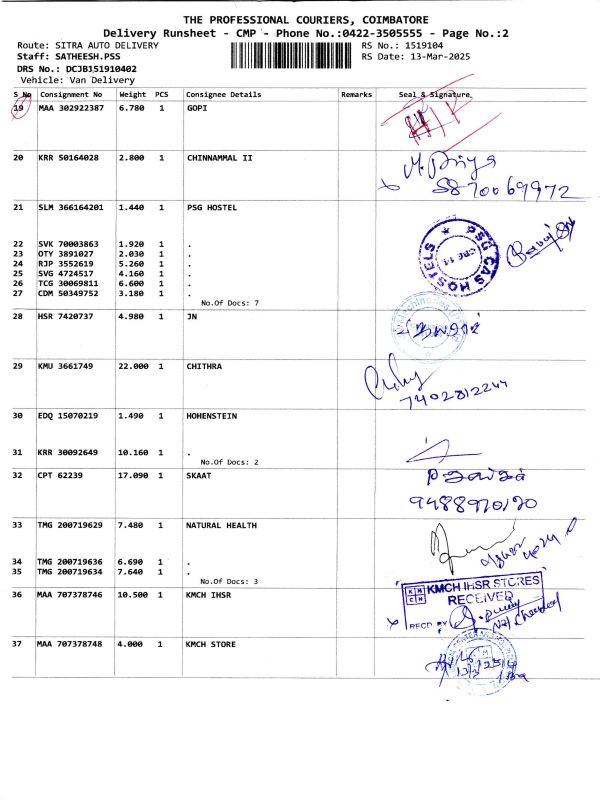 THE PROFESSIONAL COURIERS, COIMBATORE
Delivery Runsheet - CMP - Phone No.:0422-3505555 - Page No.:2
Route: SITRA AUTO DELIVERY RS No.: 1519104
Staff: SATHEESH.PSS RS Date: 13-Mar-2025
DRS No.: DCJB151910402
Vehicle: Van Delivery
S No Consignment No Weight PCS Consignee Details Remarks Seal & Signature
19 MAA 302922387 6.780 1 GOPI
20 KRR 50164028 2.800 1 CHINNAMMAL II
M. Priya
8870069972
21 SLM 366164201 1.440 1 PSG HOSTEL
PSG CAS HOSTELS
CBE-14
22 SVK 70003863 1.920 1 .
23 OTY 3891027 2.030 1 .
24 RJP 3552619 5.260 1 .
25 SVG 4724517 4.160 1 .
26 TCG 30069811 6.600 1 .
27 CDM 50349752 3.180 1 .
No.Of Docs: 7
28 HSR 7420737 4.980 1 JN
29 KMU 3661749 22.000 1 CHITHRA
30 EDQ 15070219 1.490 1 HOHENSTEIN
31 KRR 30092649 10.160 1 .
No.Of Docs: 2
32 CPT 62239 17.090 1 SKAAT
33 TMG 200719629 7.480 1 NATURAL HEALTH
34 TMG 200719636 6.690 1 .
35 TMG 200719634 7.640 1 .
No.Of Docs: 3
36 MAA 707378746 10.500 1 KMCH IHSR
KMCH IHSR STORES
RECEIVED
RECD BY
37 MAA 707378748 4.000 1 KMCH STORE